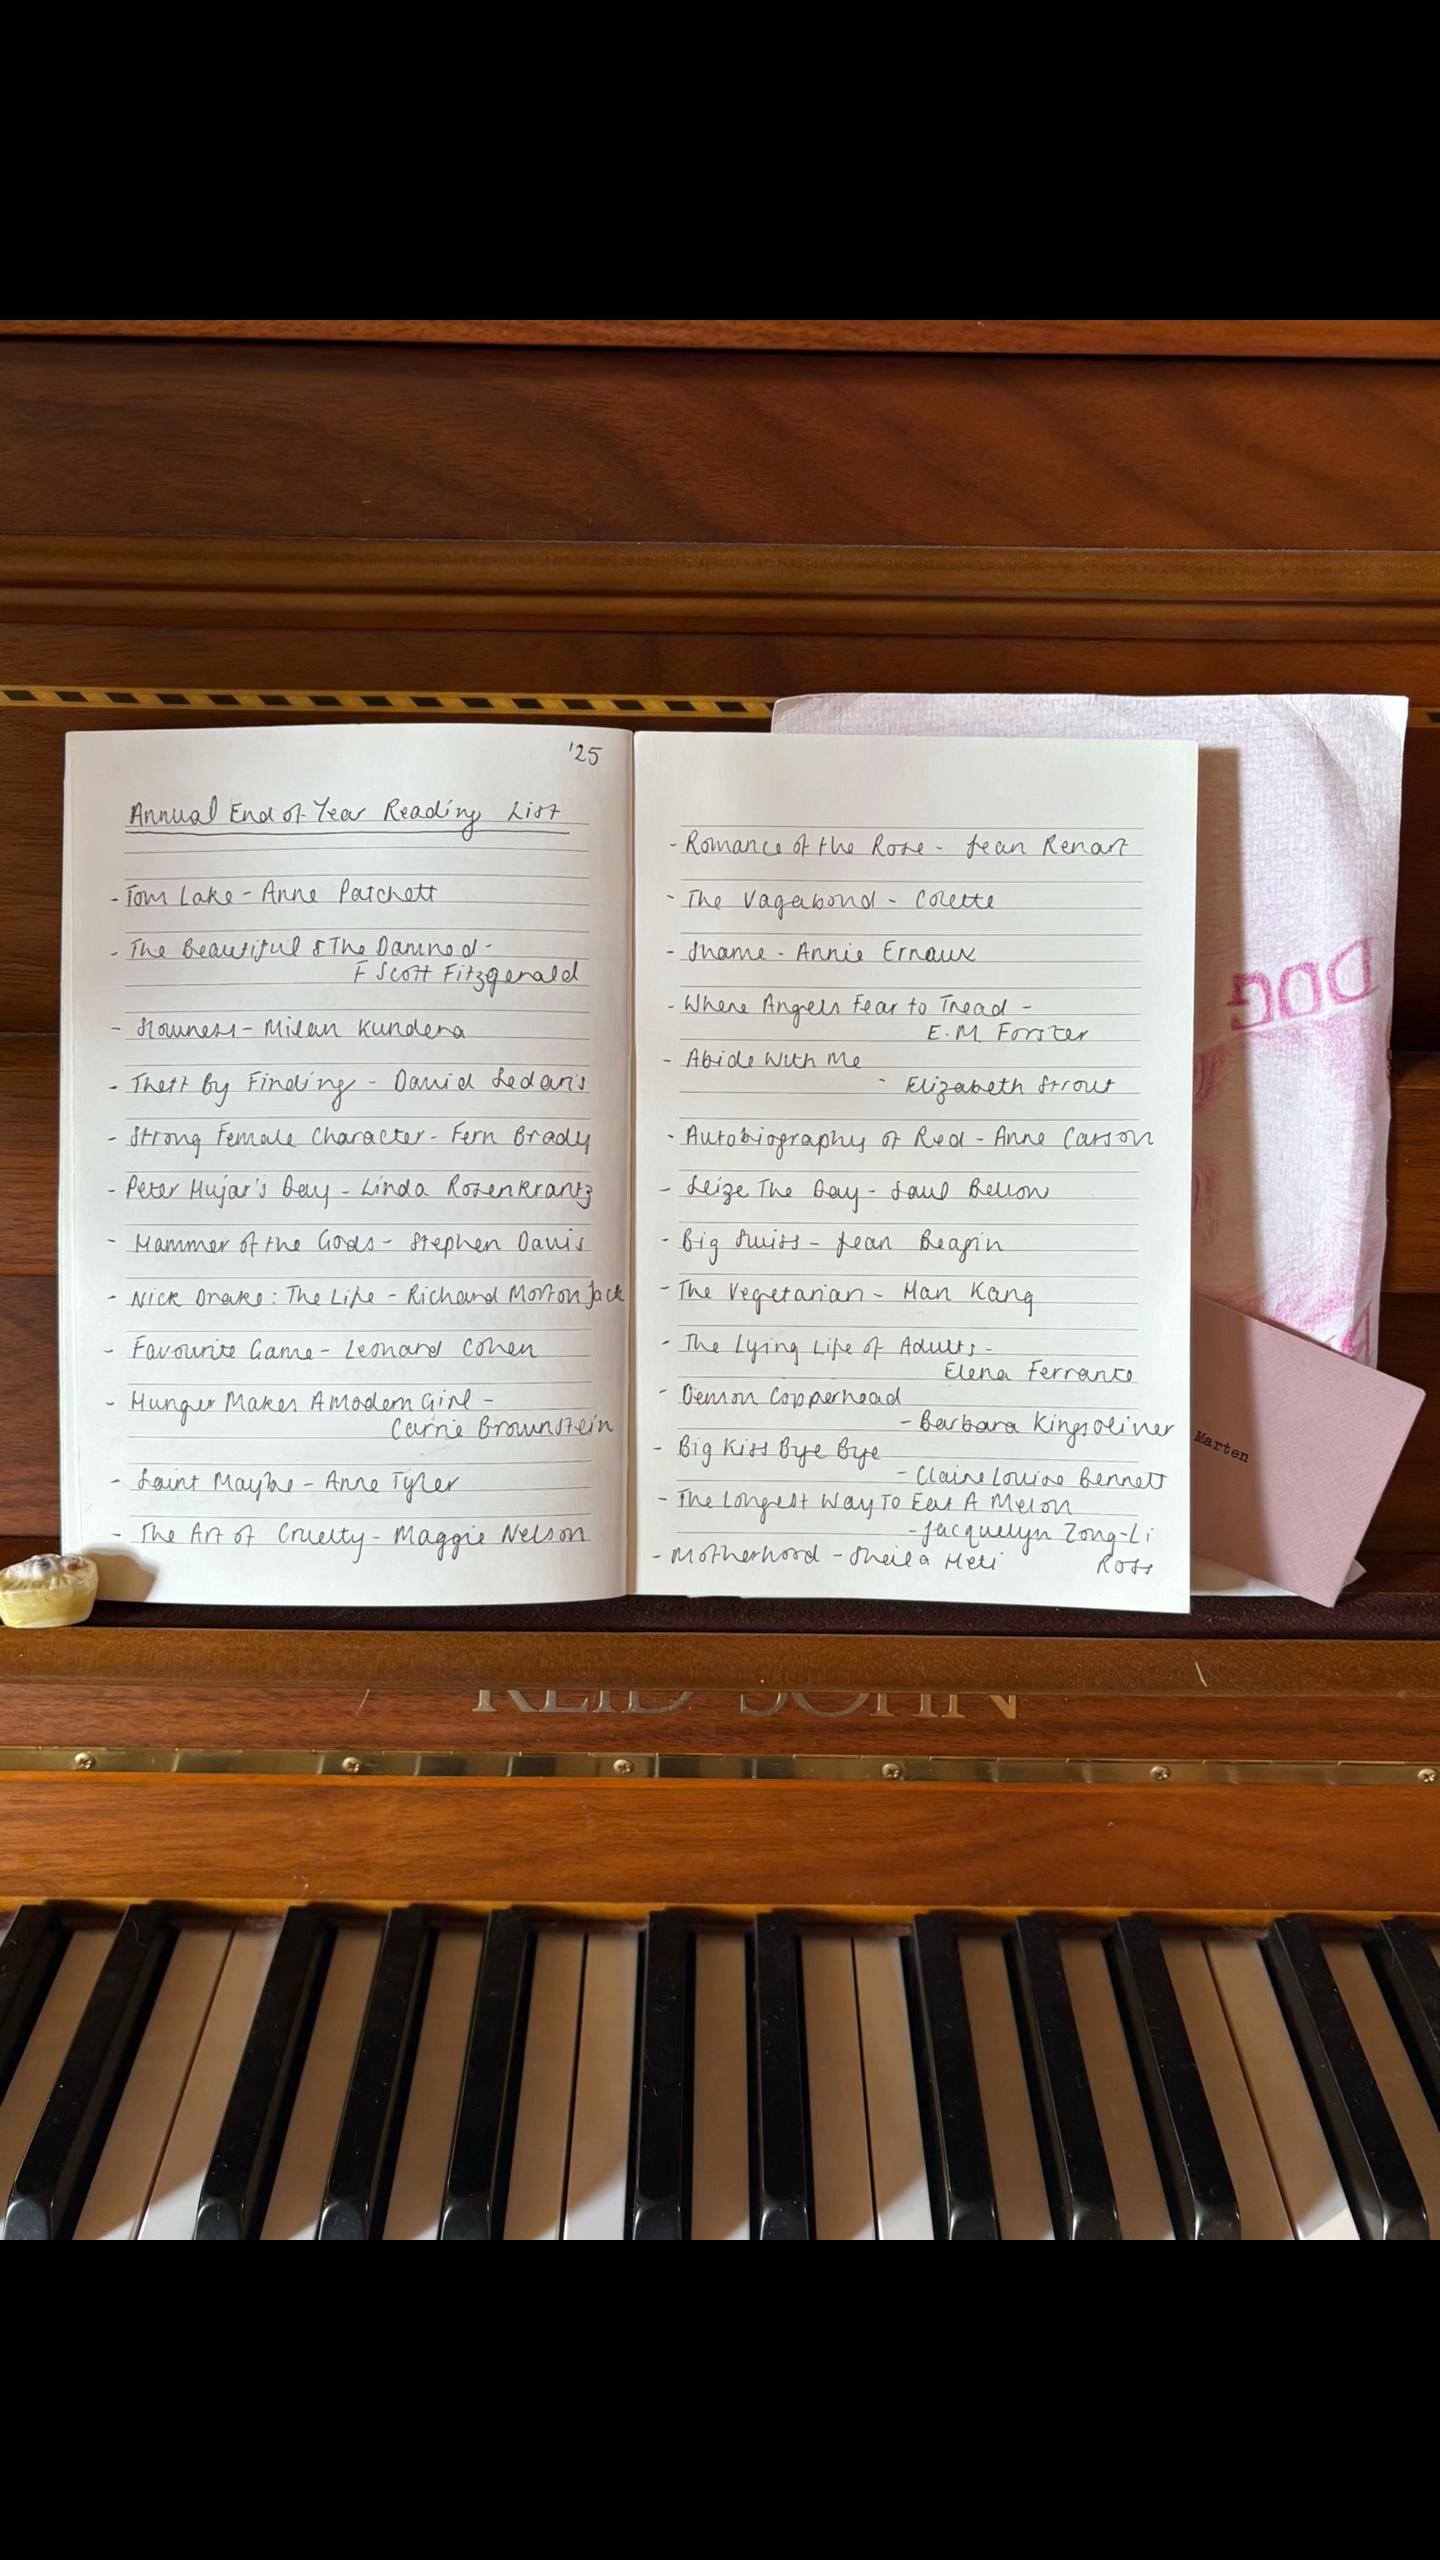 '25
Annual End of Year Reading List
- Tom Lake - Anne Patchett
- The Beautiful & The Damned -
F Scott Fitzgerald
- Slowness - Milan Kundera
- Theft By Finding - David Sedaris
- Strong Female Character - Fern Brady
- Peter Hujar's Day - Linda Rosenkrantz
- Hammer of the Gods - Stephen Davis
- Nick Drake: The Life - Richard Morton Jack
- Favourite Game - Leonard Cohen
- Hunger Makes A Modern Girl -
Carrie Brownstein
- Saint Maybe - Anne Tyler
- The Art of Cruelty - Maggie Nelson
- Romance of the Rose - Jean Renart
- The Vagabond - Colette
- Shame - Annie Ernaux
- Where Angels Fear to Tread -
E.M. Forster
- Abide With Me
- Elizabeth Strout
- Autobiography of Red - Anne Carson
- Seize The Day - Saul Bellow
- Big Swiss - Jean Beagin
- The Vegetarian - Han Kang
- The Lying Life of Adults -
Elena Ferrante
- Demon Copperhead
- Barbara Kingsoliver
- Big Kiss Bye Bye
- Claire Louise Bennett
- The Longest Way To Eat A Melon
- Jacquelyn Zong-Li
Ross
- Motherhood - Sheila Heti
DOG
Marten
REID SOHN